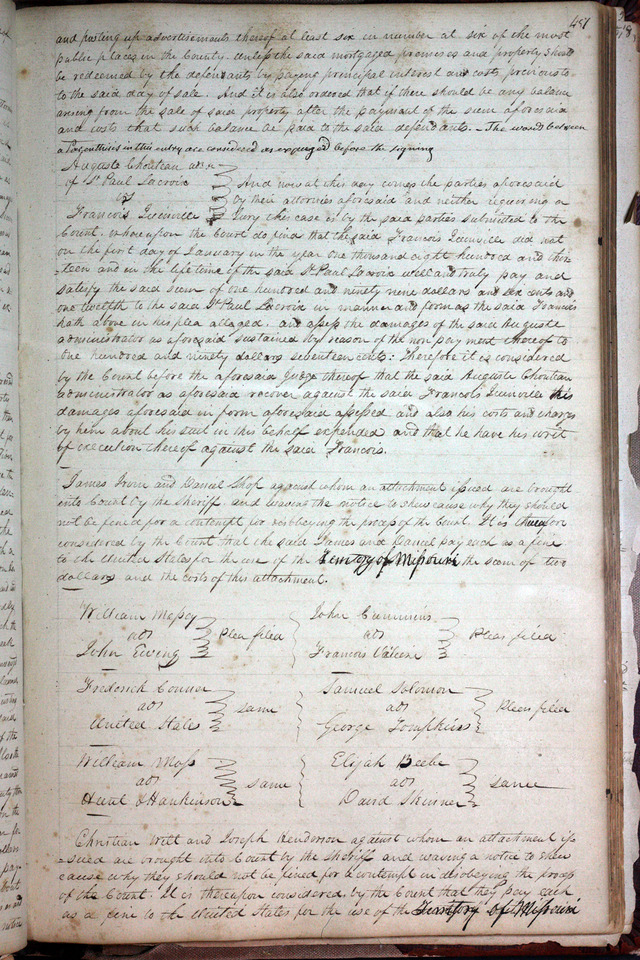 457
and puting up advertisements thereof at least six in number at six of the most
public places in the County. unless the said mortgaged premises and property should
be redeemed by the defendants by paying principal interest and costs previous to
to the said day of sale. And it is also ordered that if there should be any balance
arising from the sale of said property after the payment of the sum aforesaid
and costs that such balance be paid to the said defendants. The words between
a Parenthises in this entry are considered as expunged before the signing
Auguste Chouteau adr
of St Paul Lacroix
vs
Francois
And now at this day comes the parties aforesaid
by their attornies aforesaid and neither requiring a
Jury this case is by the said parties submitted to the
Court, whereupon the Court do finds that the said Francois did not
on the first day of January in the year one thousand eight hundred and thir
teen and in the life time of the said St Paul Lacroix well and truly pay and
satisfy the said sum of one hundred and ninety nine dollars and six cents and
one twelfth to the said St Paul Lacroix in manner and form as the said Francois
hath above in his plea alleged. and assess the damages of the said Auguste
administrator as aforesaid sustained by reason of the non payment thereof to
One hundred and ninety dollars seventeen cents. Therefore it is considered
by the Court before the aforesaid Judge thereof that the said Auguste Chouteau
administrator as aforesaid recover against the said Francois his
damages aforesaid in form aforesaid assessed and also his costs and charges
by him about his suit in this behalf expended and that he have his writ
of execution thereof against the said Francois.
James Irwin and Daniel against whom an attachment issued are brought
into Court by the Sheriff. and waving the notice to shew cause why they should
not be fined for a contempt for disobeying the process of the Court. It is therefore
considered by the Court that the said James and Daniel pay each as a fine
to the United States for the use of the Territory of Missouri the sum of two
dollars and the costs of this attachment.
William Massey
ads
John Ewing
Plea filed
John Cummins
ads
Francois
Pleas filed
Frederick Connor
ads
United States
same
Samuel Solomon
ads
George Tompkins
Pleas filed
William Moss
ads
& Hankinson
same
Elijah Beebe
ads
David
same
Christian Witt and Joseph Henderson against whom an attachment is
sued are brought into Court by the Sheriff and waving a notice to shew
cause why they should not be fined for a contempt in disobeying the process
of the Court. It is thereupon considered by the Court that they pay each
as a fine to the United States for the use of the Territory of Missouri